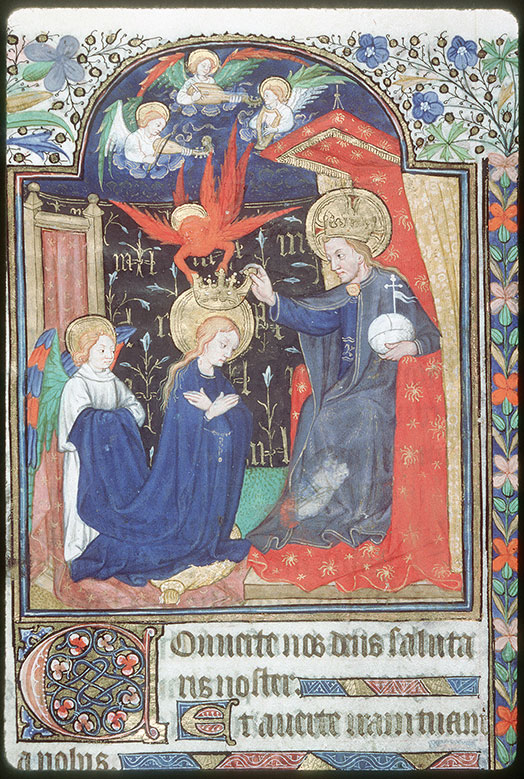 Conuerte nos deus saluta
ris noster.
Et auerte iram tuam
a nobis.